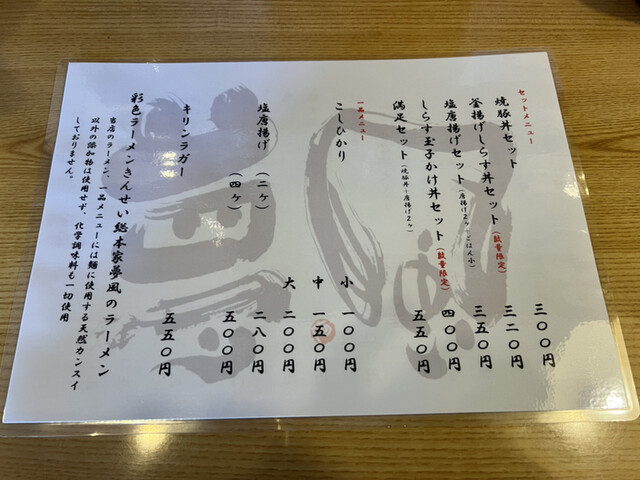 セットメニュー
焼豚丼セット 三〇〇円
釜揚げしらす丼セット(数量限定) 三二〇円
塩唐揚げセット(唐揚げ2ヶ・ごはん小) 三五〇円
しらす玉子かけ丼セット(数量限定) 四〇〇円
満足セット(焼豚丼+唐揚げ2ヶ) 五五〇円
一品メニュー
こしひかり 小 一〇〇円
中 一五〇円
大 二〇〇円
塩唐揚げ (二ヶ) 二八〇円
(四ヶ) 五〇〇円
キリンラガー 五五〇円
彩色ラーメンきんせい総本家夢風のラーメン
当店のラーメン、一品メニューには麺に使用する天然カンスイ
以外の添加物は使用せず、化学調味料も一切使用
しておりません。